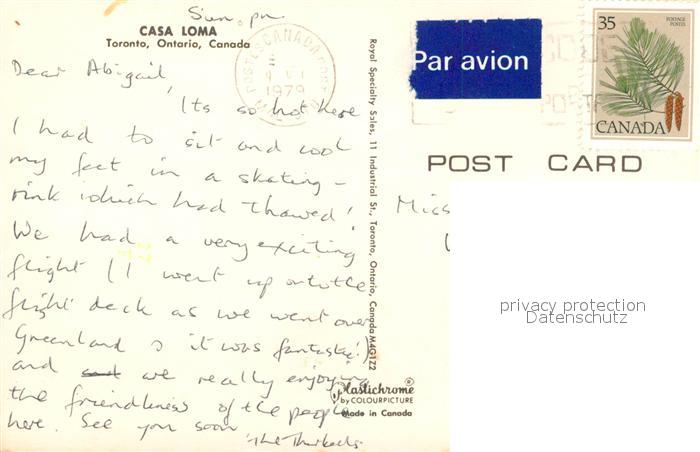 Sun. pm
CASA LOMA
Toronto, Ontario, Canada
Dear Abigail
Its so hot here
I had to sit and cool
my feet in a skating-
rink which had thawed!
We had a very exciting
flight (I went up onto the
flight deck as we went over
Greenland & it was fantastic!)
and we really enjoying
the friendliness of the people
here. See you soon
The
Royal Specialty Sales, 11 Industrial St., Toronto, Ontario, Canada M4G1Z2
Plastichrome®
by COLOURPICTURE
Made in Canada
POSTES CANADA
1979
Par avion
35
POSTAGE
POSTES
CANADA
POST CARD
Miss
privacy protection
Datenschutz